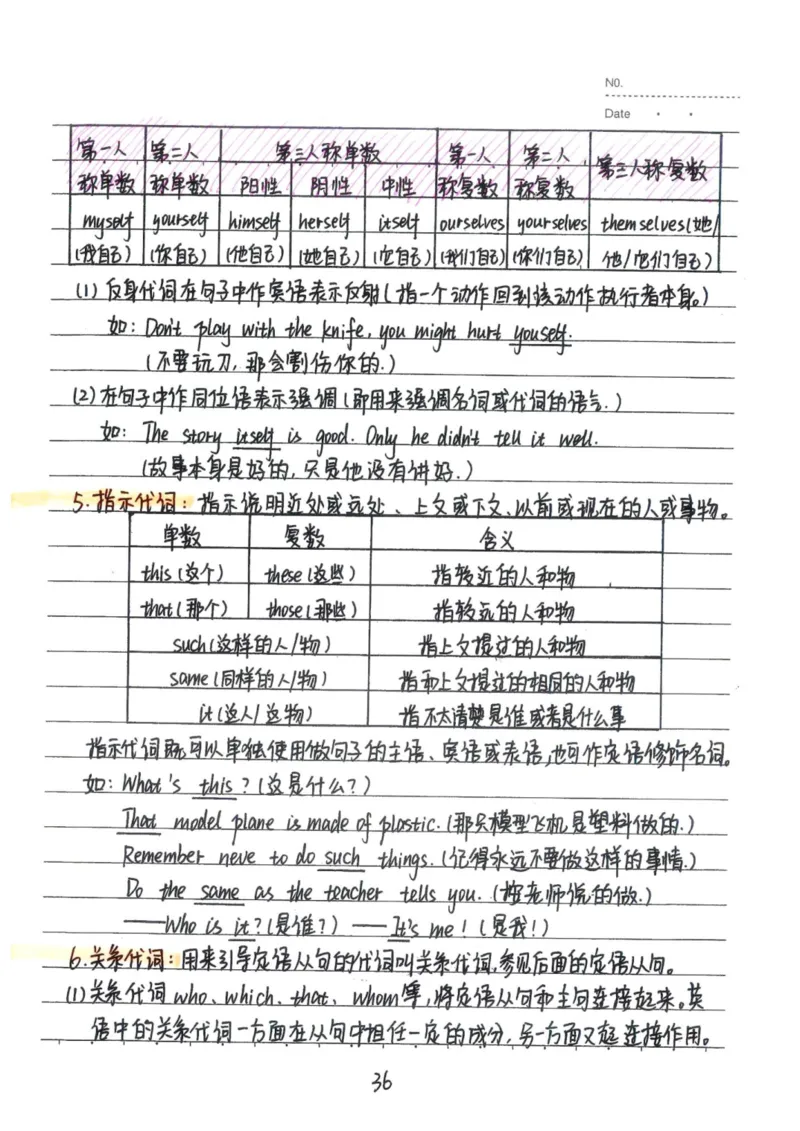 NO.
Date
第一人 第二人 第三人称单数 第一人 第二人 第三人称复数
称单数 称单数 阳性 阴性 中性 称复数 称复数
myself yourself himself herself itself ourselves yourselves themselves(她/
(我自己) (你自己) (他自己) (她自己) (它自己) (我们自己) (你们自己) 他/它们自己)
(1) 反身代词在句子中作宾语表示反射(指一个动作回到该动作执行者本身。)
如: Don't play with the knife, you might hurt youself.
(不要玩刀, 那会割伤你的.)
(2) 在句子中作同位语表示强调(即用来强调名词或代词的语气.)
如: The story itself is good. Only he didn't tell it well.
(故事本身是好的, 只是他没有讲好.)
5.指示代词: 指示说明近处或远处、上文或下文、以前或现在的人或事物。
单数 复数 含义
this(这个) these(这些) 指较近的人和物
that(那个) those(那些) 指较远的人和物
such(这样的人/物) 指上文提过的人和物
same(同样的人/物) 指和上文提过的相同的人和物
it(这人/这物) 指不太清楚是谁或者是什么事
指示代词既可以单独使用做句子的主语、宾语或表语,也可作定语修饰名词。
如: What's this?(这是什么?)
That model plane is made of plastic.(那只模型飞机是塑料做的.)
Remember neve to do such things.(记得永远不要做这样的事情.)
Do the same as the teacher tells you.(按老师说的做.)
——Who is it?(是谁?) ——It's me!(是我!)
6.关系代词: 用来引导定语从句的代词叫关系代词,参见后面的定语从句。
(1)关系代词who、which、that、whom等,将定语从句和主句连接起来。英
语中的关系代词一方面在从句中担任一定的成分,另一方面又起连接作用。
36